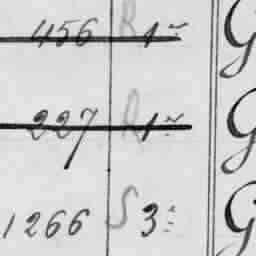 456 R 1~ G
227 R 1~ G
1266 S 3~ G